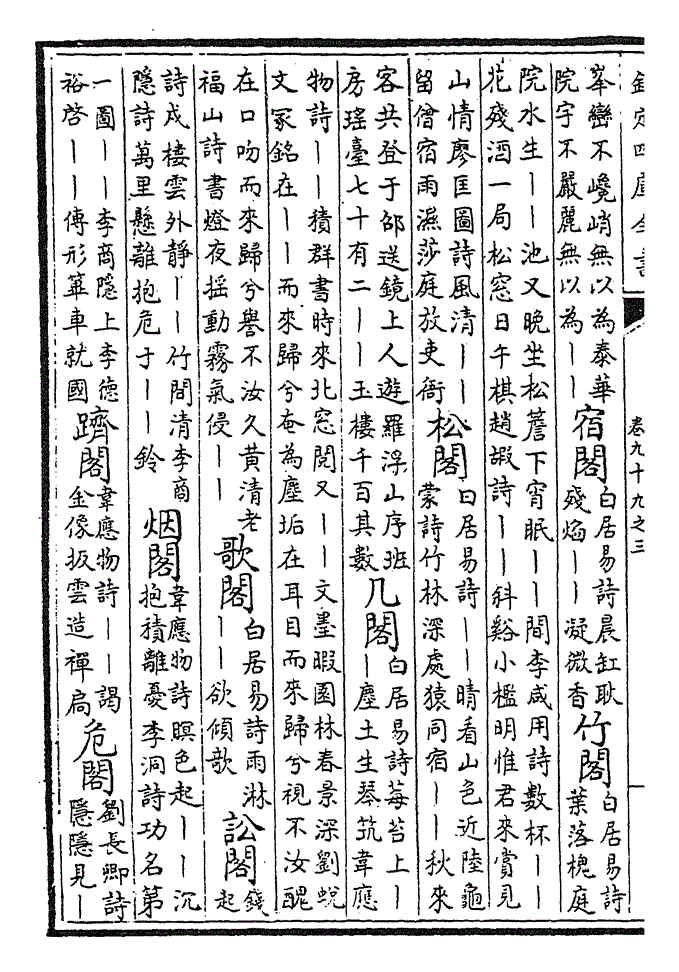 欽定四庫全書
卷九十九之三
峯巒不巉峭無以為泰華
院宇不嚴麗無以為｜｜
宿閣
白居易詩晨缸耿
殘焰｜｜凝微香
竹閣
白居易詩
葉落槐庭
院水生｜｜池又晚坐松簷下宵眠｜｜間李咸用詩數杯｜｜
花殘酒一局松窓日午棋趙嘏詩｜｜斜谿小檻明惟君來賞見
山情廖匡圖詩風清｜｜
留僧宿雨濕莎庭放吏衙
松閣
白居易詩｜｜晴看山色近陸龜
蒙詩竹林深處猿同宿｜｜秋來
客共登于邵送鏡上人遊羅浮山序班
房瑤臺七十有二｜｜玉樓千百其數
几閣
白居易詩莓苔上｜
｜塵土生琴筑韋應
物詩｜｜積群書時來北窓閱又｜｜文墨暇園林春景深劉蛻
文冢銘在｜｜而來歸兮奄為塵垢在耳目而來歸兮視不汝醜
在口吻而來歸兮譽不汝久黃清老
福山詩書燈夜搖動霧氣侵｜｜
歌閣
白居易詩雨淋
｜｜欲傾歌
訟閣
錢
起
詩戍樓雲外靜｜｜竹間清李商
隱詩萬里懸離抱危于｜｜鈴
烟閣
韋應物詩暝色起｜｜沉
抱積離憂李洞詩功名第
一圖｜｜李商隱上李德
裕啓｜｜傳形篳車就國
躋閣
韋應物詩｜｜謁
金像扳雲造禪扃
危閣
劉長卿詩
隱隱見｜